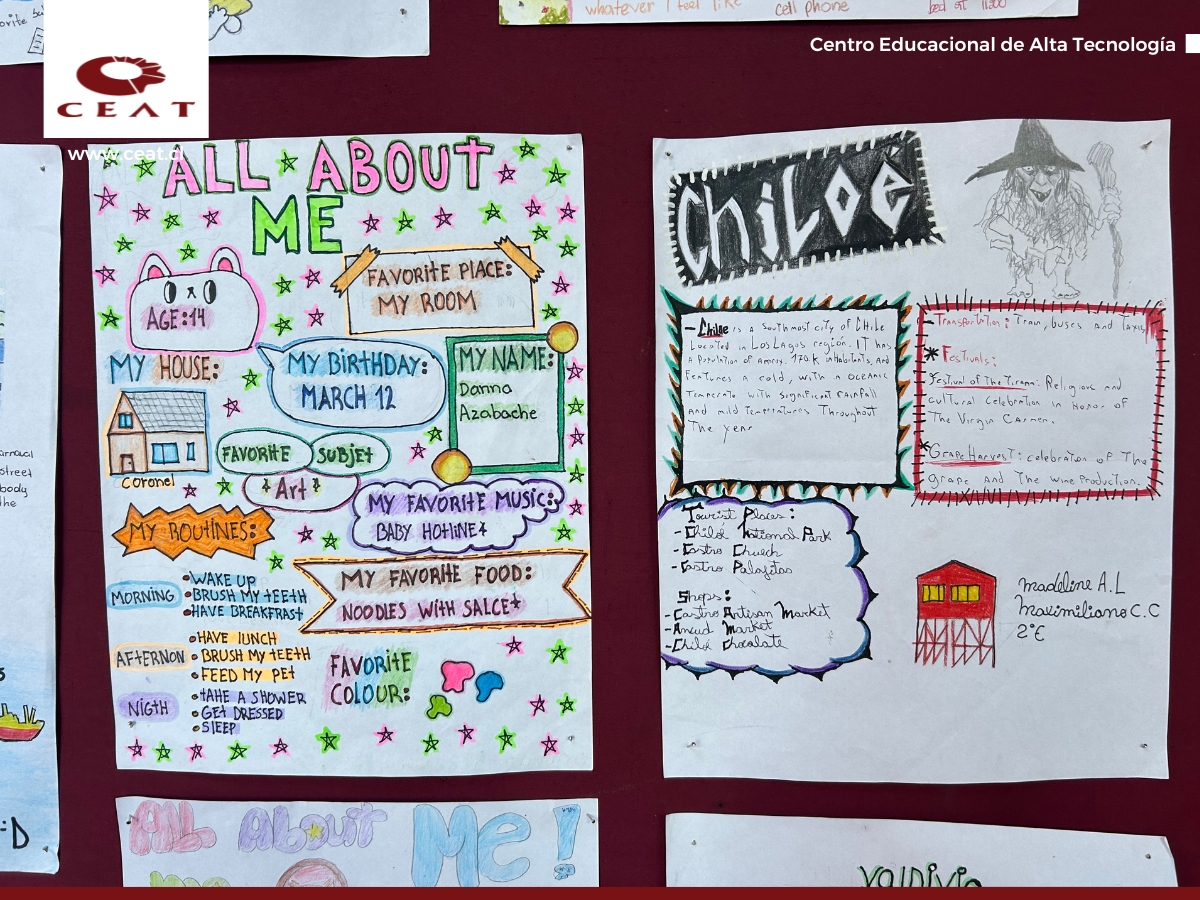 whatever I feel like
cell phone
bed at 11:00
Centro Educacional de Alta Tecnología
CEAT
www.ceat.cl
ALL ABOUT
ME
AGE:14
FAVORITE PLACE:
MY ROOM
MY HOUSE:
Coronel
MY BIRTHDAY:
MARCH 12
MY NAME:
Danna
Azabache
FAVORITE SUBJET
Art
MY FAVORITE MUSIC:
BABY HOTLINE
MY ROUTINES:
MY FAVORITE FOOD:
NOODLES WITH SALCE
MORNING
WAKE UP
BRUSH MY TEETH
HAVE BREAKFRAST
AFTERNON
HAVE LUNCH
BRUSH MY TEETH
FEED MY PET
NIGTH
TAKE A SHOWER
GET DRESSED
SLEEP
FAVORITE
COLOUR:
CHILOÉ
- Chiloe is a southmost city of CHile
Located in Los Lagos region. IT has
a Population of Aprox. 170k inhabitants, and
Features a cold, with a oceanic
Temperate with significant rainfall
and mild temperatures Throughout
The year
- Transportation: Tran, buses and Taxis
* Festivals:
Festival of the Tirana: Religious and
cultural celebration in Honor of
The Virgin Carmen.
* Grape Harvest: celebration of The
grape and The wine Production.
Tourist Places:
- Chiloé National Park
- Castro Church
- Castro Palafitos
Shops:
- Castro Artisan Market
- Ancud Market
- Chiloé Chocolate
Madeline A.L
Maximiliano C.C
2°E
street
body
the
:D
ALL About Me!
Valdivia